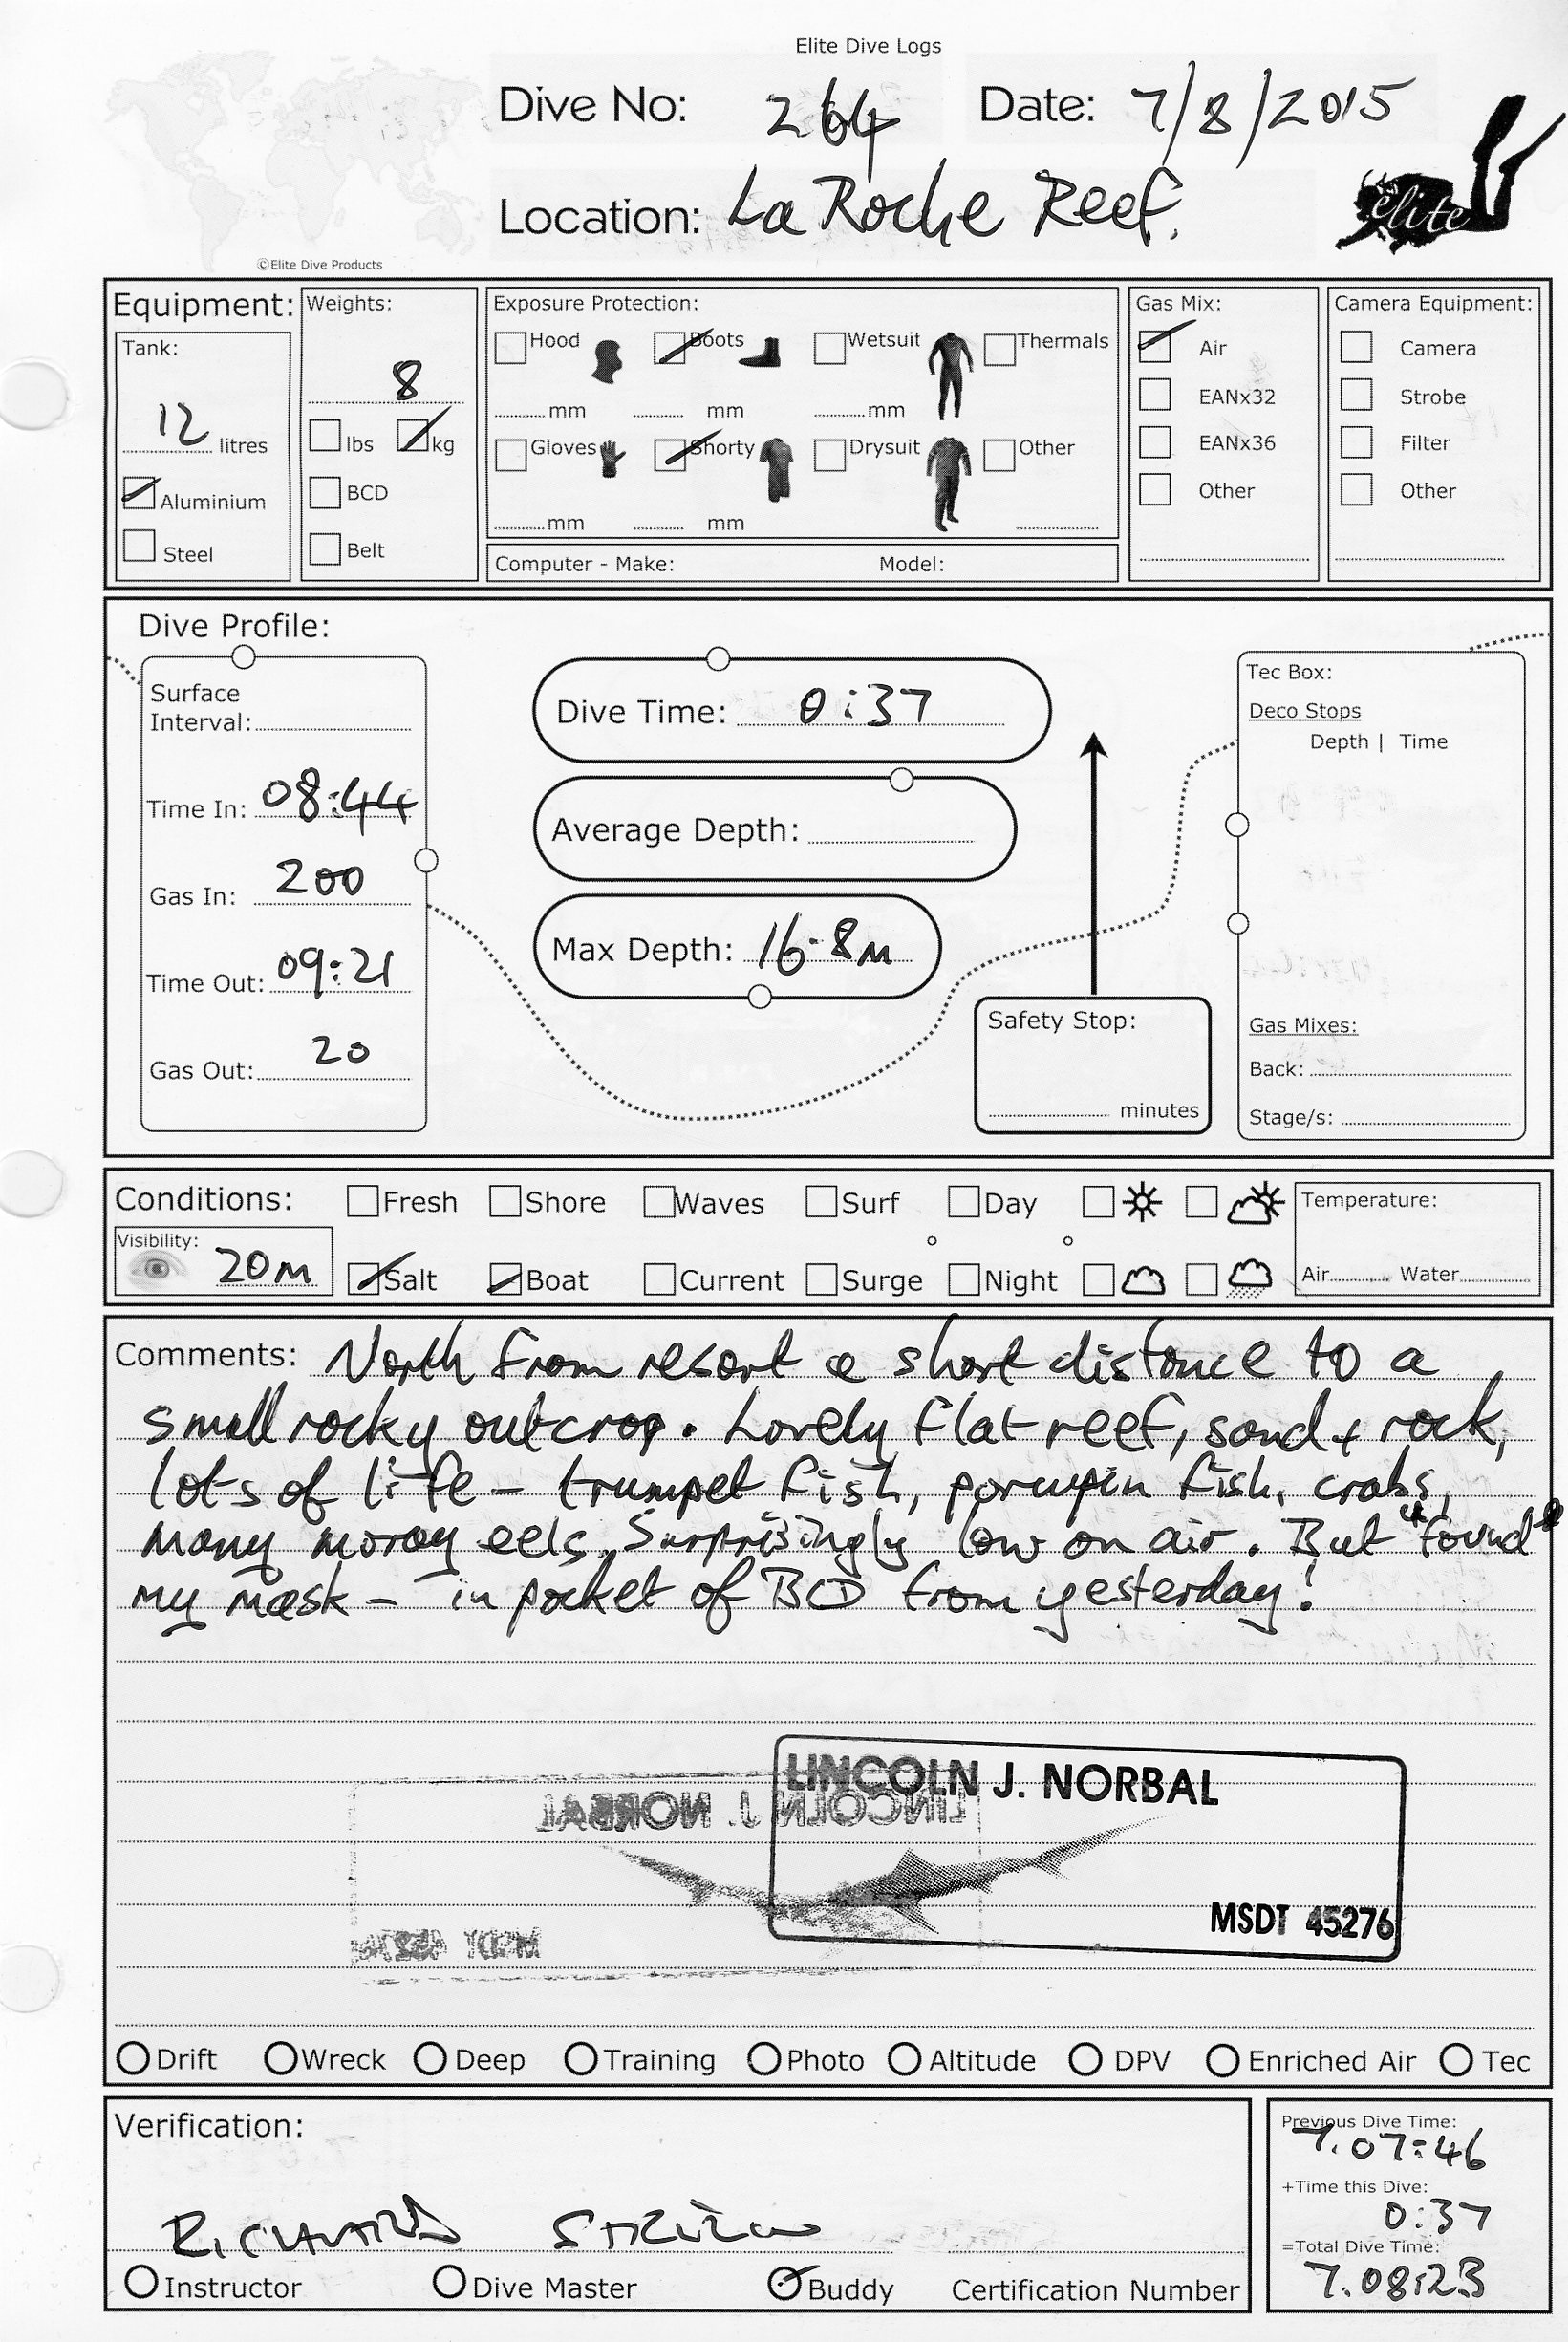 Elite Dive Logs
Dive No: 264 Date: 7/8/2015
Location: La Roche Reef.
elite
©Elite Dive Products
Equipment:
Tank:
12 litres
Aluminium
Steel
Weights:
8
lbs kg
BCD
Belt
Exposure Protection:
Hood Boots Wetsuit Thermals
mm mm mm
Gloves Shorty Drysuit Other
mm mm
Computer - Make: Model:
Gas Mix:
Air
EANx32
EANx36
Other
Camera Equipment:
Camera
Strobe
Filter
Other
Dive Profile:
Surface
Interval:
Time In: 08:44
Gas In: 200
Time Out: 09:21
Gas Out: 20
Dive Time: 0:37
Average Depth:
Max Depth: 16.8m
Safety Stop:
minutes
Tec Box:
Deco Stops
Depth | Time
Gas Mixes:
Back:
Stage/s:
Conditions: Fresh Shore Waves Surf Day
Visibility: 20m
Salt Boat Current Surge Night
Temperature:
Air Water
Comments: North from resort a short distance to a
small rocky outcrop. Lovely flat reef, sand + rock,
lots of life - trumpet fish, porcupin fish, crabs,
many moray eels. Surprisingly low on air. But "found"
my mask - in pocket of BCD from yesterday!
LINCOLN J. NORBAL
MSDT 45276
Drift Wreck Deep Training Photo Altitude DPV Enriched Air Tec
Verification:
RICHARD
Instructor Dive Master Buddy Certification Number
Previous Dive Time:
7.07:46
+Time this Dive:
0:37
=Total Dive Time:
7.08:23